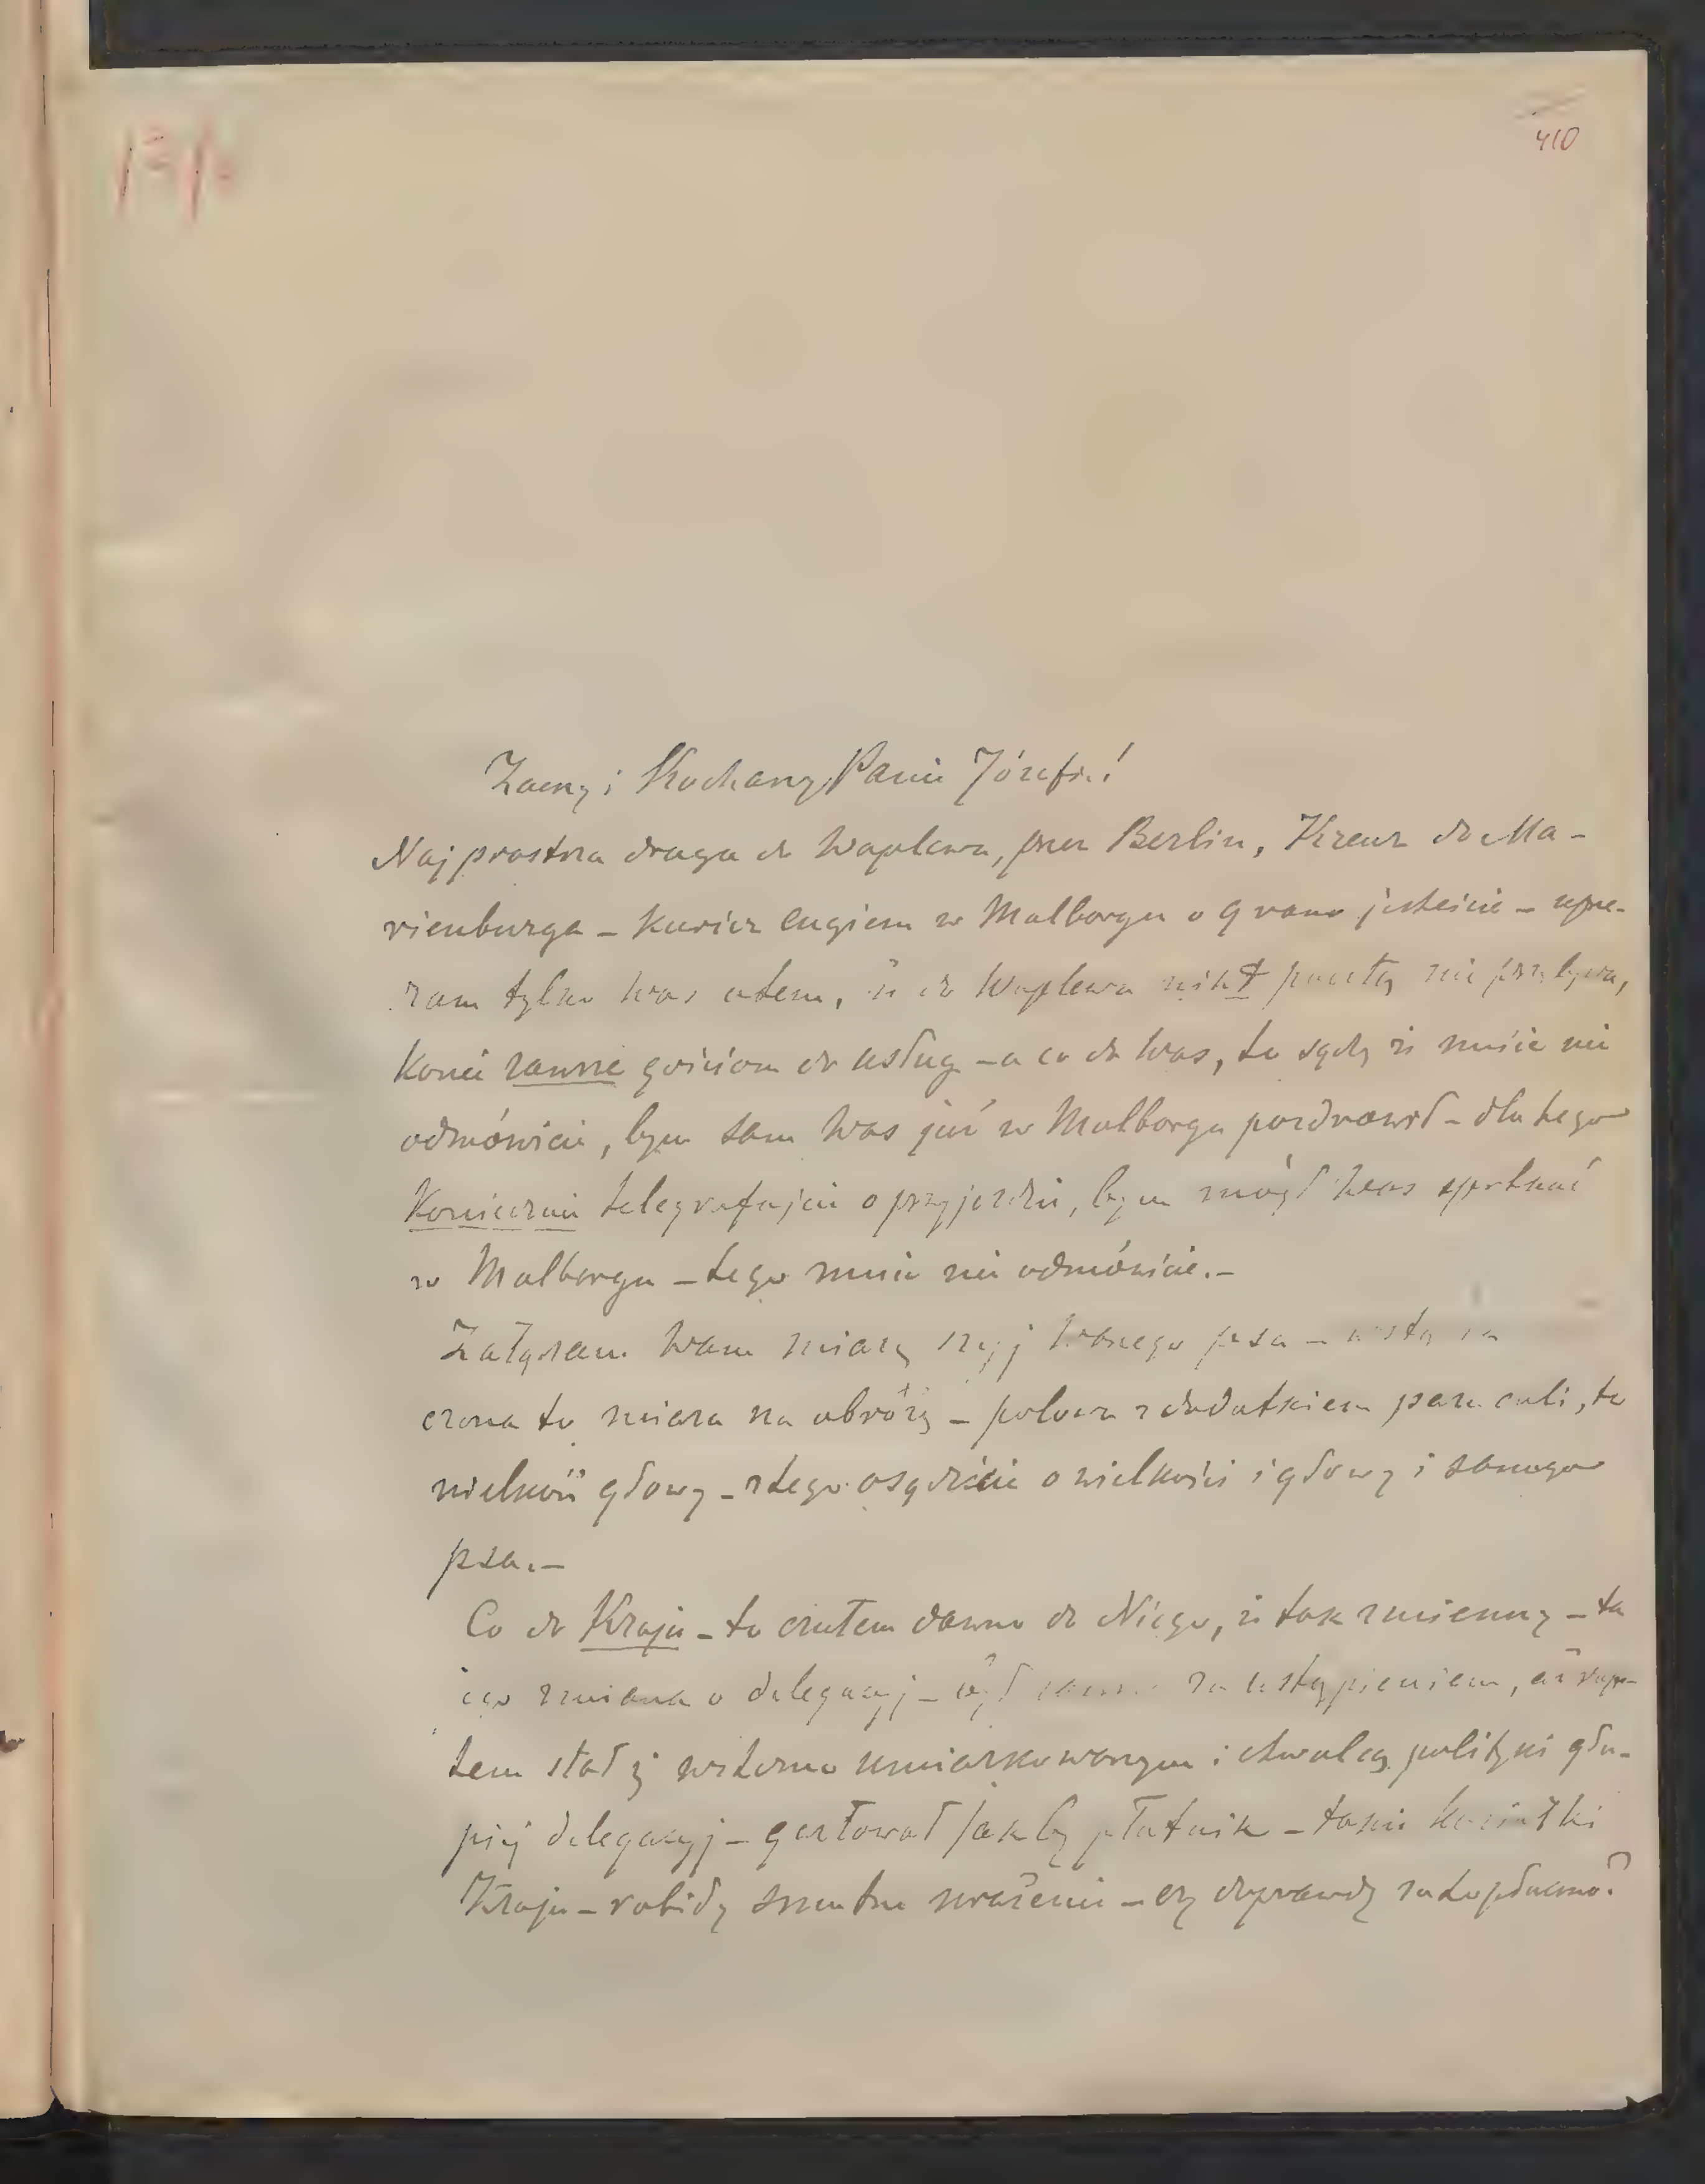 410
Zacny i Kochany Panie Józefie!
Najprostsza droga do Waplewa, przez Berlin, Kreuz do Ma-
rienburga – kurier cugiem w Malborgu o 9 rano jesteście – uprze-
dzam tylko Was o tem, iż do Waplewa nikt pocztą nie przybywa,
Konie zawsze gościom do usług – a co do Was, to sądzę iż mnie nie
odmówicie, bym sam Was już w Malborgu pozdrowił – dla tego
Koniecznie telegrafujcie o przyjeździe, bym mógł Was spotkać
w Malborgu – tego mnie nie odmówicie. –
Załączam Wam miarę szyj psa –
czona to miara na obrożę – połowa z dodatkiem paru cali, to
wielkość głowy – z tego osądźcie o wielkości i głowy i samego
psa. –
Co do Kraju – to czułem dawno do Niego, iż tak zmienny – ta
jego zmiana o delegacyj – był za ustąpieniem,
tem stał się umiarkowanym i chwalcą polityki głu-
piej delegacyj – jakby płatnik – takie
Kraju – robiły smutne wrażenie – czy doprawdy za to płacono?